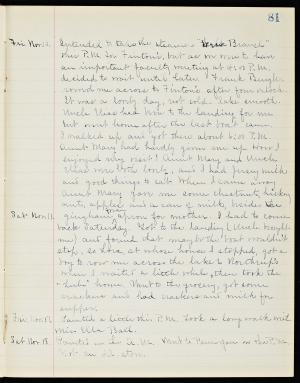 81
Fri Nov. 10. Intended to take the steamer "    Branch"
this P.M. for Fenton's, but as we were to have
an important faculty meeting at 4:00 P.M.
decided to wait until later. Frank
rowed me across to Fenton's after four o'clock.
It was a lovely day, not cold. Lake smooth.
Uncle     had been to the landing for me
but went home after the last boat came.
I walked up and got there about 5:00 P.M.
Aunt Mary had hardly given me up
enjoyed my visit! Aunt Mary and Uncle
    were both lovely, and I had Jersey milk
and good things to eat. When I came away
Aunt Mary gave me some chestnuts, hickory
nuts, apples and a can of milk, besides
gingham apron for mother. I had to come
Sat Nov. 11. back Saturday. Got to the landing (Uncle
me) and found that maybe the boat wouldn't
stop. So     at whose house I stopped, got a
boy to row me across the lake to
when I waited a little while, then took the
"   " home. Went to the grocery, got some
crackers and had crackers and milk for
supper.
Fri Nov. 17. Painted a little this P.M. Took a long walk with
Miss Ella Ball.
Sat Nov. 18. Painted in the A.M. Went to     in the P.M.
Got an oil stove.